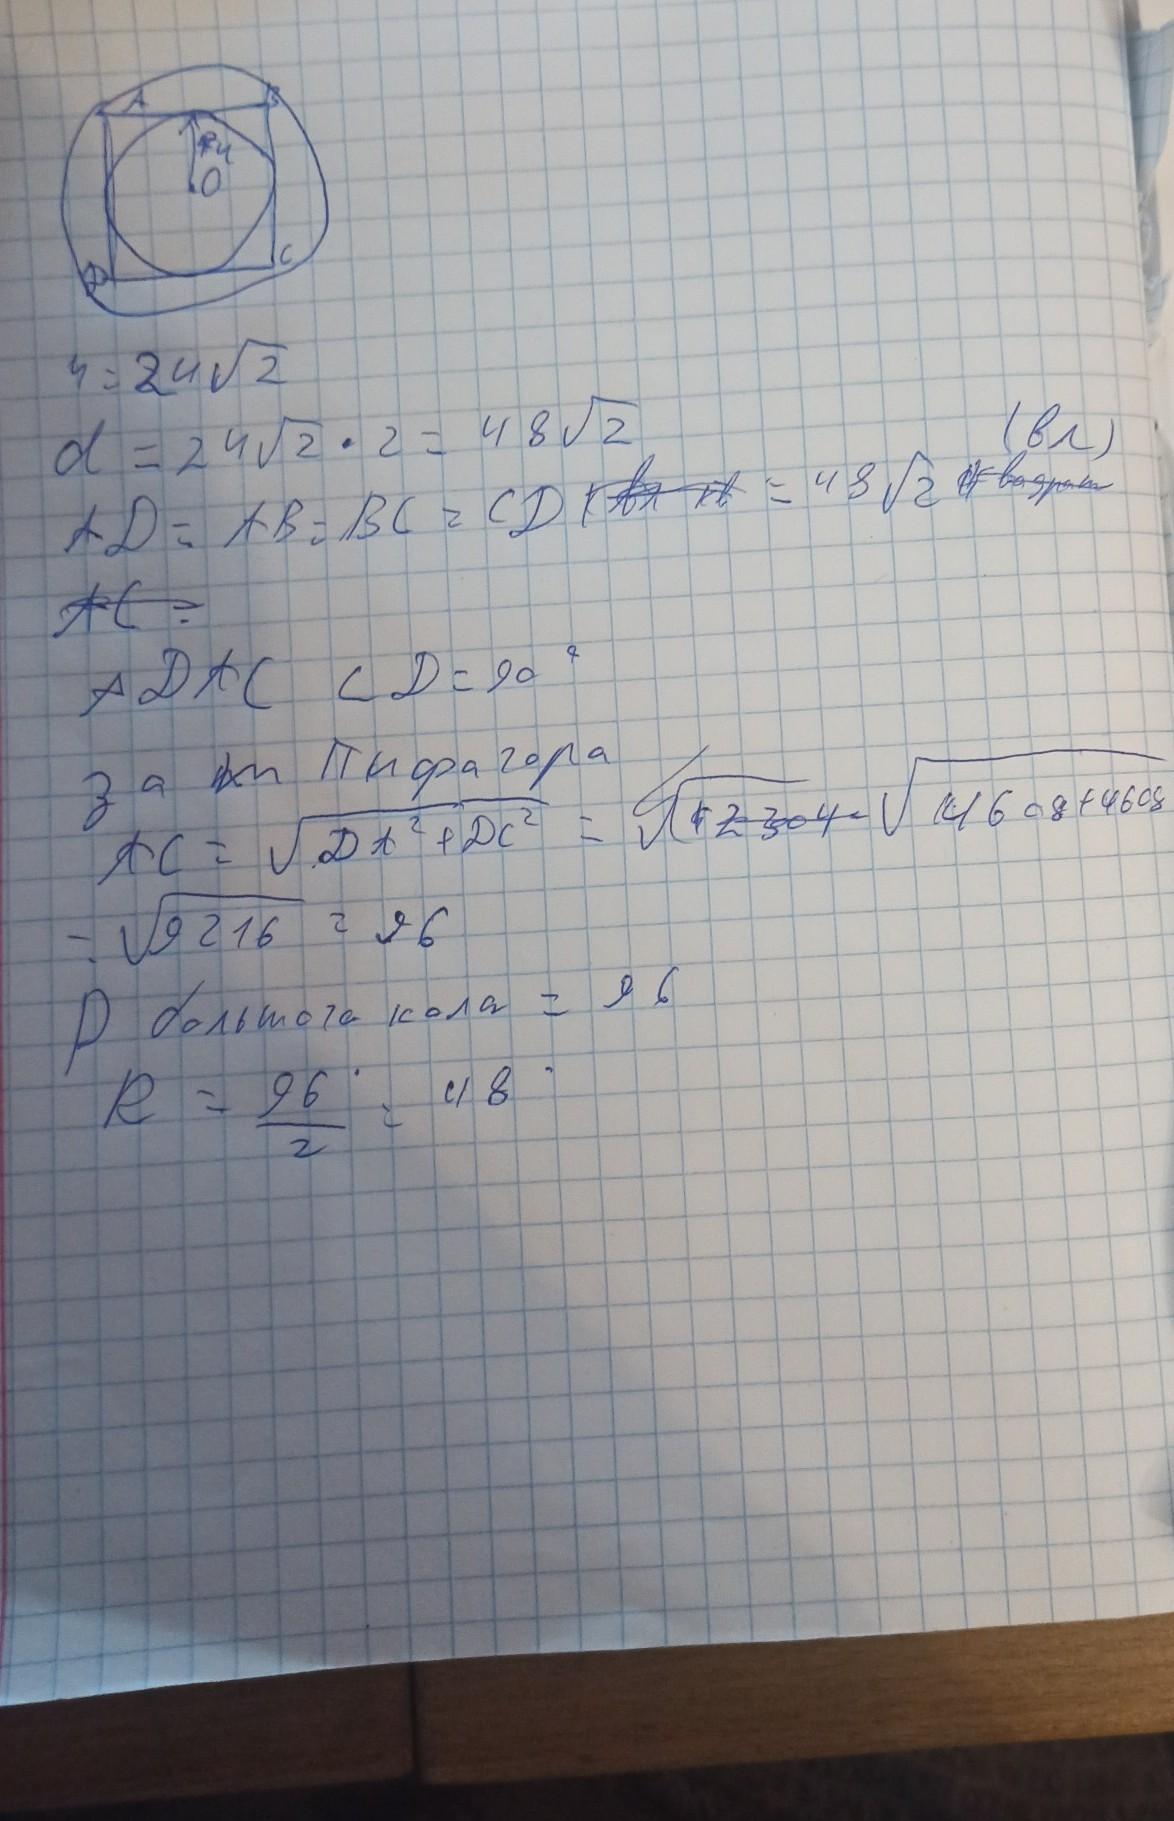 A B
r
O
D C
r = 24√2
d = 24√2 · 2 = 48√2 (вл)
AD = AB = BC = CD = 48√2
AC =
△DAC ∠D = 90°
за Пифагора
AC = √DA² + DC² = √4608 + 4608
= √9216 = 96
D большога кола = 96
R = 96/2 = 48